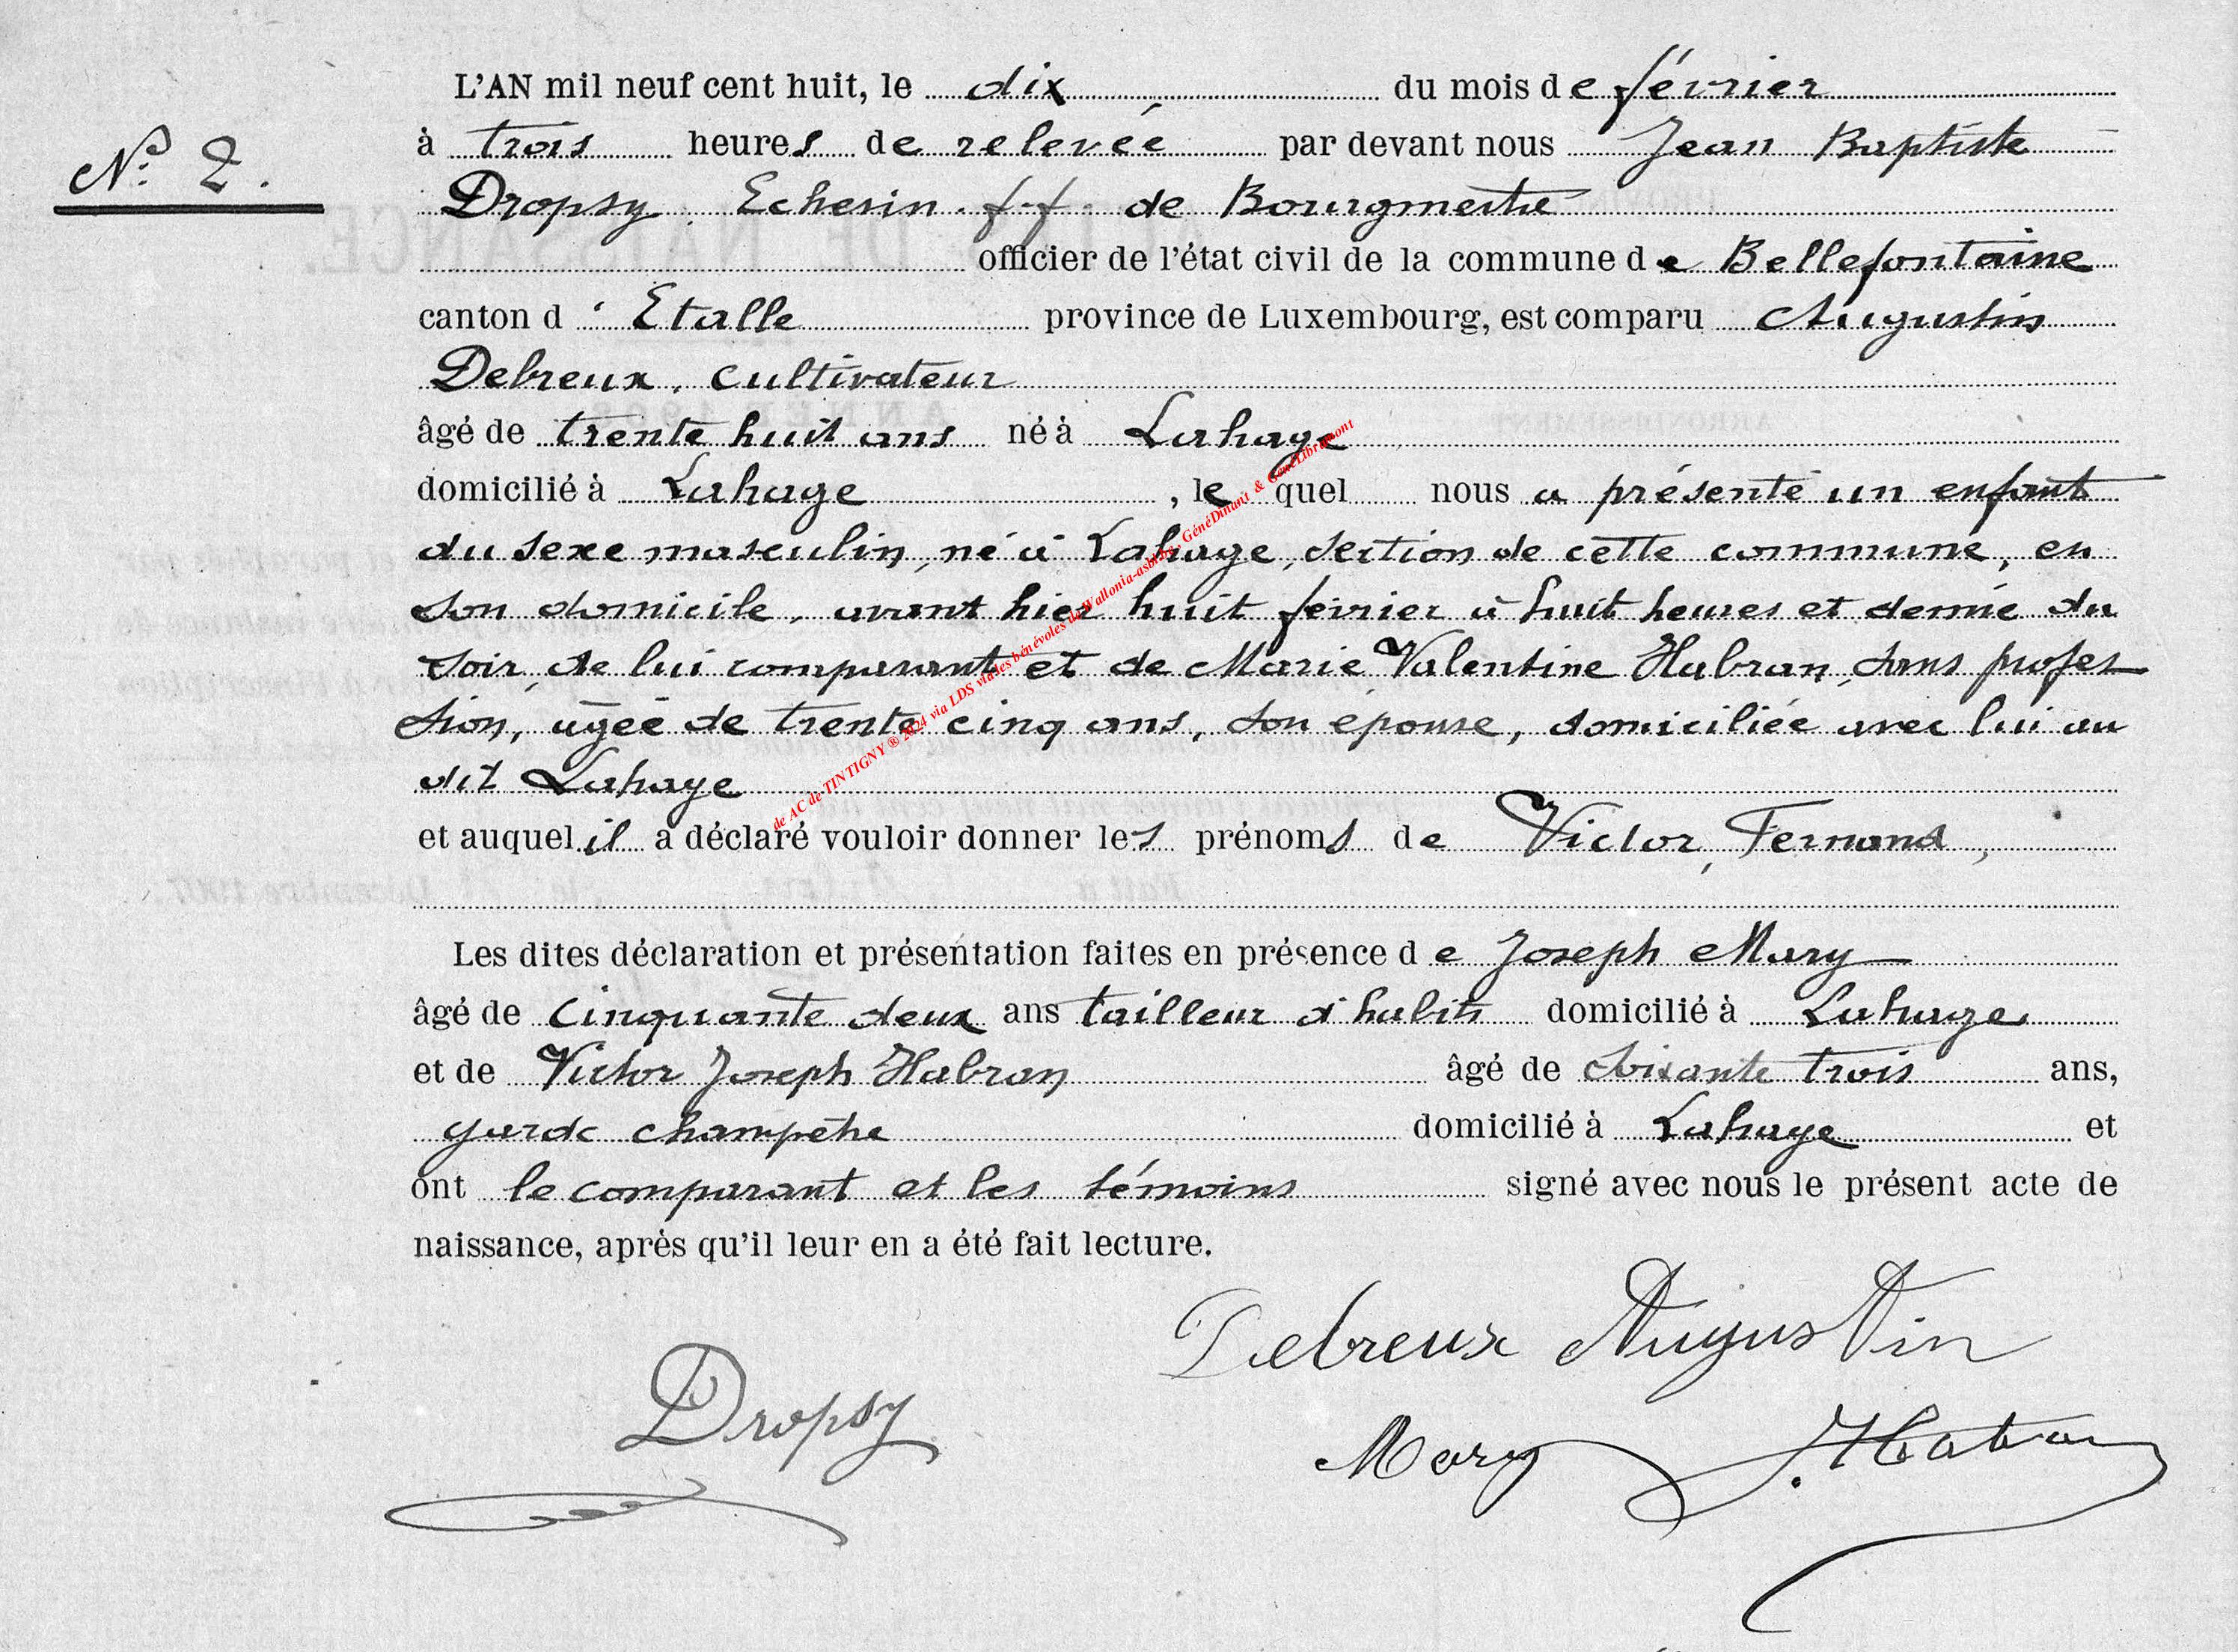 L'AN mil neuf cent huit, le dix du mois de février
N° 2.
à trois heures de relevée par devant nous Jean Baptiste
Dropsy, Echevin f.f. de Bourgmestre
officier de l'état civil de la commune de Bellefontaine
canton d'Etalle province de Luxembourg, est comparu Augustin
Debreux, cultivateur
âgé de trente huit ans né à Lahage
domicilié à Lahage, lequel nous a présenté un enfant
du sexe masculin, né à Lahage, section de cette commune, en
son domicile, avant hier huit février à huit heures et demie du
soir, de lui comparant et de Marie Valentine Habran, sans profes
sion, âgée de trente cinq ans, son epouse, domiciliée avec lui au
dit Lahage
et auquel il a déclaré vouloir donner les prénoms de Victor, Fernand,
Les dites déclaration et présentation faites en présence de Joseph Mary
âgé de cinquante deux ans tailleur d'habits domicilié à Lahage
et de Victor Joseph Habran âgé de soixante trois ans,
garde champêtre domicilié à Lahage et
ont le comparant et les témoins signé avec nous le présent acte de
naissance, après qu'il leur en a été fait lecture.
Debreux Augustin
Dropsy
Mary J. Habran
de AC de TINTIGNY ® 2024 via LDS via les bénévoles de Wallonia-asbl.be, GénéDinant & GénéLibramont